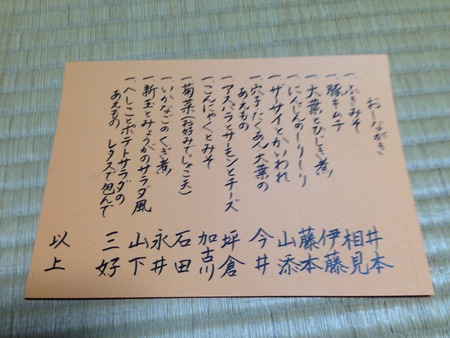 おしながき
一、ふきみそ
一、豚キムチ
一、大葉とひじき煮
一、にんじんのしりしり
一、ザーサイとかいわれ
一、穴子たくあん大葉の
あえもの
一、アスパラとサーモンとチーズ
一、こんにゃくとみそ
一、菊菜(お好みでじゃこ天)
一、いかなごのくぎ煮
一、新玉とみょうがのサラダ風
一、へしことポテトサラダの
あえもの レタスで包んで
井本
相見
伊藤
藤本
山添
今井
坪倉
加古川
石田
永井
山下
三好
以上